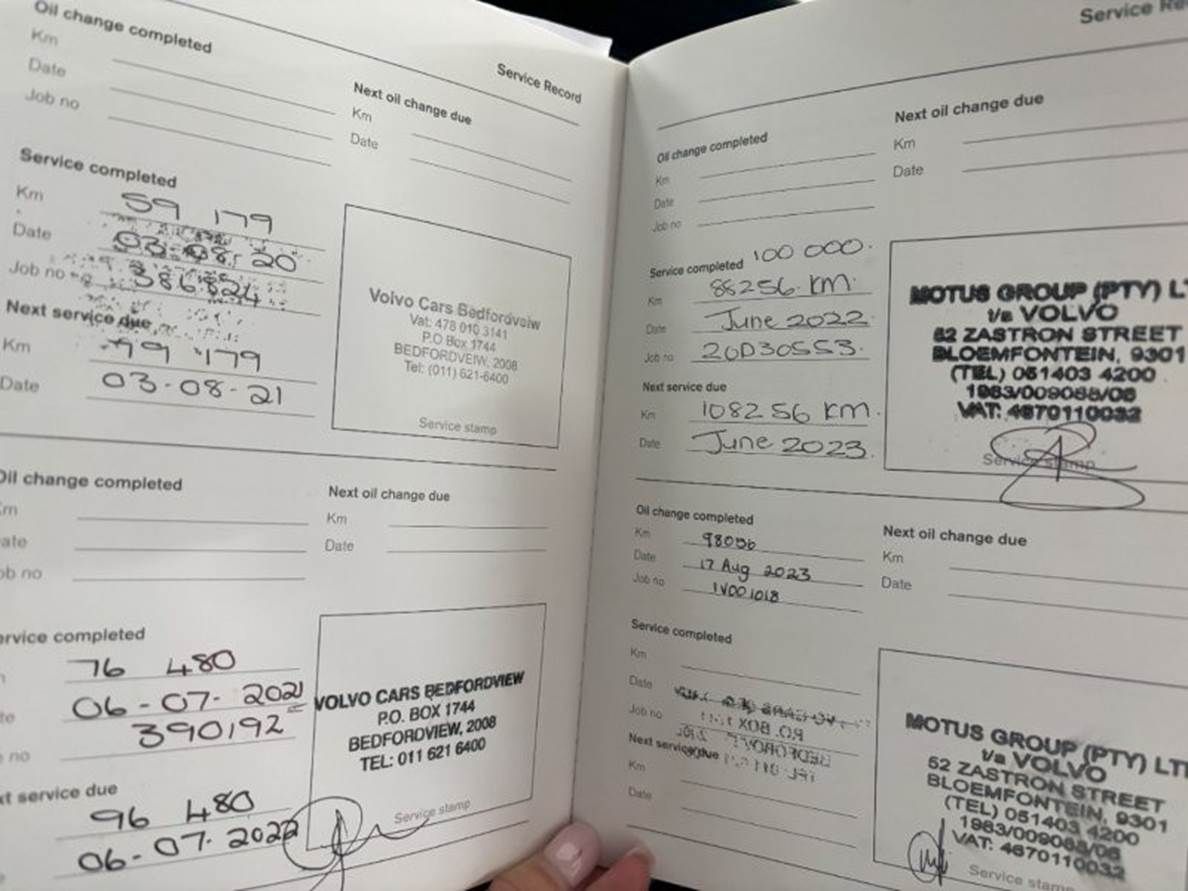 Oil change completed
Km
Date
Job no
Service Record
Next oil change due
Km
Date
Service completed
Km 59 179
Date 03-08-20
Job no 386824
Next service due
Km 79 179
Date 03-08-21
Volvo Cars Bedfordveiw
Vat: 478 010 3141
P.O Box 1744
BEDFORDVEIW, 2008
Tel: (011) 621-6400
Service stamp
Oil change completed
Km
Date
Job no
Next oil change due
Km
Date
Service completed
76 480
06-07-2021
390192
Next service due
96 480
06-07-2022
VOLVO CARS BEDFORDVIEW
P.O. BOX 1744
BEDFORDVIEW, 2008
TEL: 011 621 6400
Service stamp
Service Re
Oil change completed
Km
Date
Job no
Next oil change due
Km
Date
Service completed 100 000.
Km 88256 km.
Date June 2022
Job no 20D30553.
Next service due
Km 108256 km.
Date June 2023.
MOTUS GROUP (PTY) LT
t/a VOLVO
52 ZASTRON STREET
BLOEMFONTEIN, 9301
(TEL) 051403 4200
1983/009088/06
VAT: 4670110032
Service stamp
Oil change completed
Km 98056
Date 17 Aug 2023
Job no IV001018
Next oil change due
Km
Date
Service completed
Km
Date
Job no
Next service due
Km
Date
MOTUS GROUP (PTY) LT
t/a VOLVO
52 ZASTRON STREET
BLOEMFONTEIN, 9301
(TEL) 051403 4200
1983/009088/06
VAT: 4670110032
Service stamp